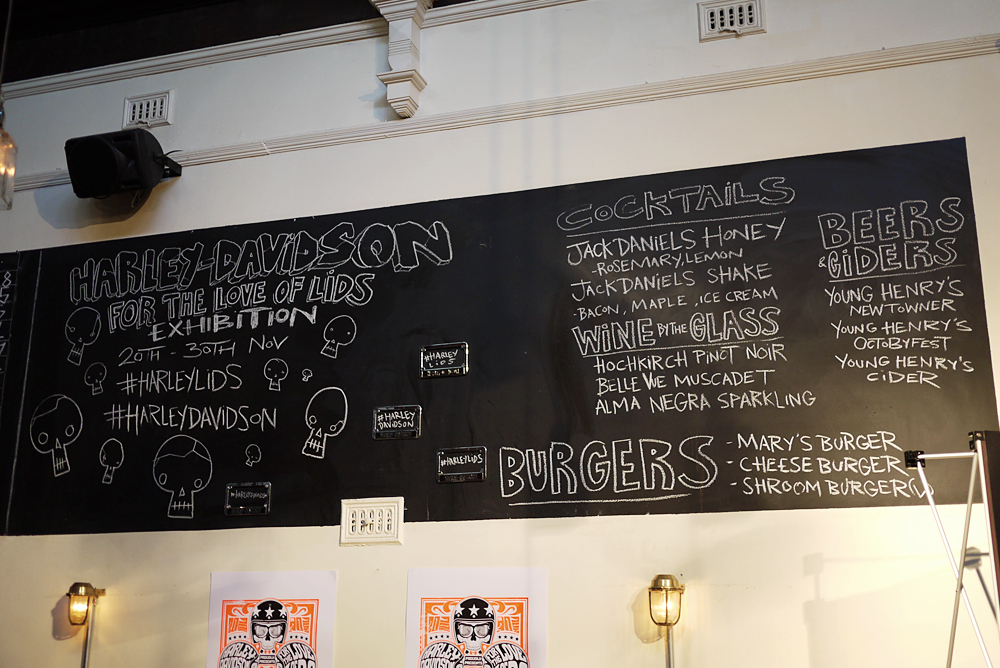 HARLEY-DAVIDSON
FOR THE LOVE OF LIDS
EXHIBITION
20TH - 30TH NOV
#HARLEYLIDS
#HARLEYDAVIDSON
#HARLEY
LIDS
#HARLEY
DAVIDSON
#HARLEYLIDS
COCKTAILS
JACK DANIELS HONEY
-ROSEMARY, LEMON
JACK DANIELS SHAKE
-BACON, MAPLE, ICE CREAM
WINE BY THE GLASS
HOCHKIRCH PINOT NOIR
BELLE VUE MUSCADET
ALMA NEGRA SPARKLING
BEERS
& CIDERS
YOUNG HENRY'S
NEWTOWNER
YOUNG HENRY'S
OCTOBYFEST
YOUNG HENRY'S
CIDER
BURGERS
- MARY'S BURGER
- CHEESE BURGER
- SHROOM BURGER (V)
HARLEY
HARLEY